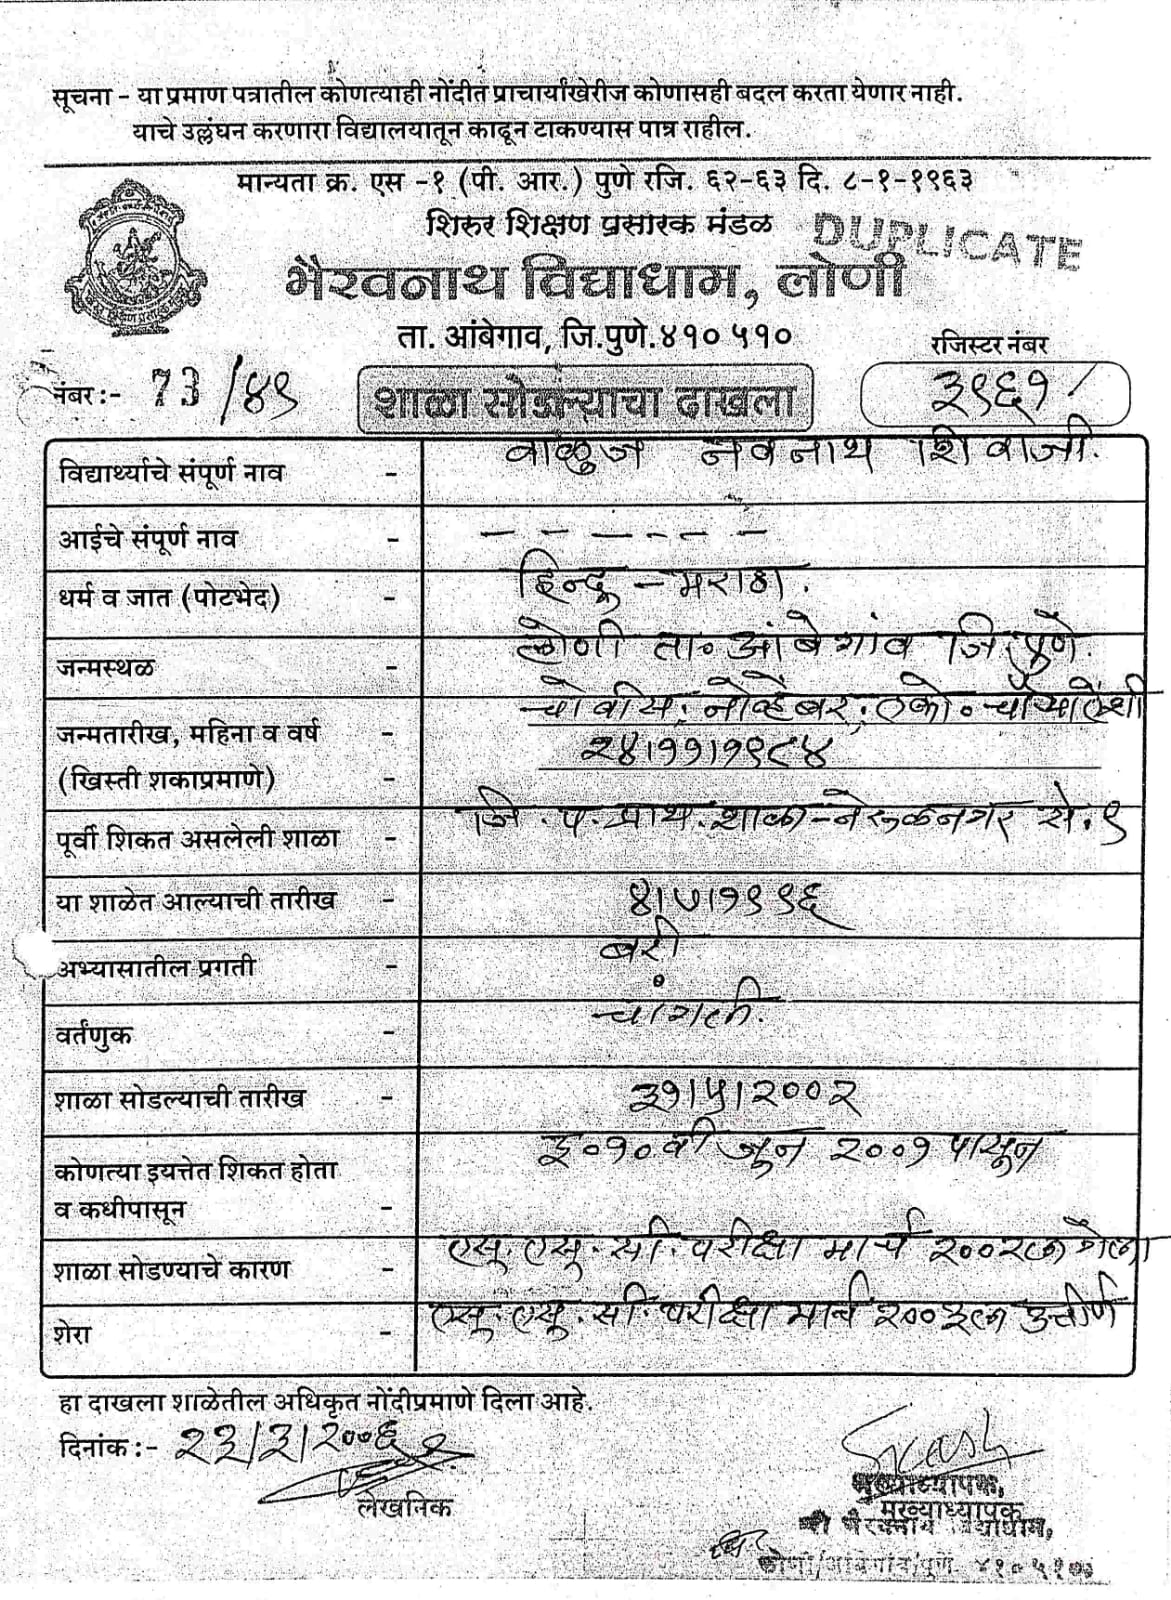 सूचना - या प्रमाण पत्रातील कोणत्याही नोंदीत प्राचार्यांखेरीज कोणासही बदल करता येणार नाही.
याचे उल्लंघन करणारा विद्यालयातून काढून टाकण्यास पात्र राहील.
मान्यता क्र. एस -१ (पी. आर.) पुणे रजि. ६२-६३ दि. ८-१-१९६३
शिरुर शिक्षण प्रसारक मंडळ
DUPLICATE
भैरवनाथ विद्याधाम, लोणी
ता. आंबेगाव, जि.पुणे.४१० ५१०
रजिस्टर नंबर
नंबर :- 73/४९ शाळा सोडल्याचा दाखला ३९६१/
विद्यार्थ्याचे संपूर्ण नाव - वाळुंज नवनाथ शिवाजी.
आईचे संपूर्ण नाव - - - - - - -
धर्म व जात (पोटभेद) - हिन्दू - मराठा.
जन्मस्थळ - लोणी ता. आंबेगांव जि. पुणे.
जन्मतारीख, महिना व वर्ष - चोवीस, नोव्हेंबर, एको. चौऱ्याऐंशी
(खिस्ती शकाप्रमाणे) - २४।११।१९८४
पूर्वी शिकत असलेली शाळा - जि. प. प्राथ. शाळा - नेरुळनगर से. ९
या शाळेत आल्याची तारीख - ४।७।१९९६
अभ्यासातील प्रगती - बरी
वर्तणुक - चांगली.
शाळा सोडल्याची तारीख - ३१।५।२००२
कोणत्या इयत्तेत शिकत होता इ. १० वी जून २००१ पासून
व कधीपासून -
शाळा सोडण्याचे कारण - एस्. एस्. सी. परीक्षा मार्च २००२ला गेला
शेरा - एस्. एस्. सी. परीक्षा मार्च २००३ला उत्तीर्ण
हा दाखला शाळेतील अधिकृत नोंदीप्रमाणे दिला आहे.
दिनांक :- २३/३/२००६
लेखनिक
मुख्याध्यापक,
मुख्याध्यापक
श्री भैरवनाथ विद्याधाम,
लोणी/आंबेगांव/पुणे. ४१० ५१०